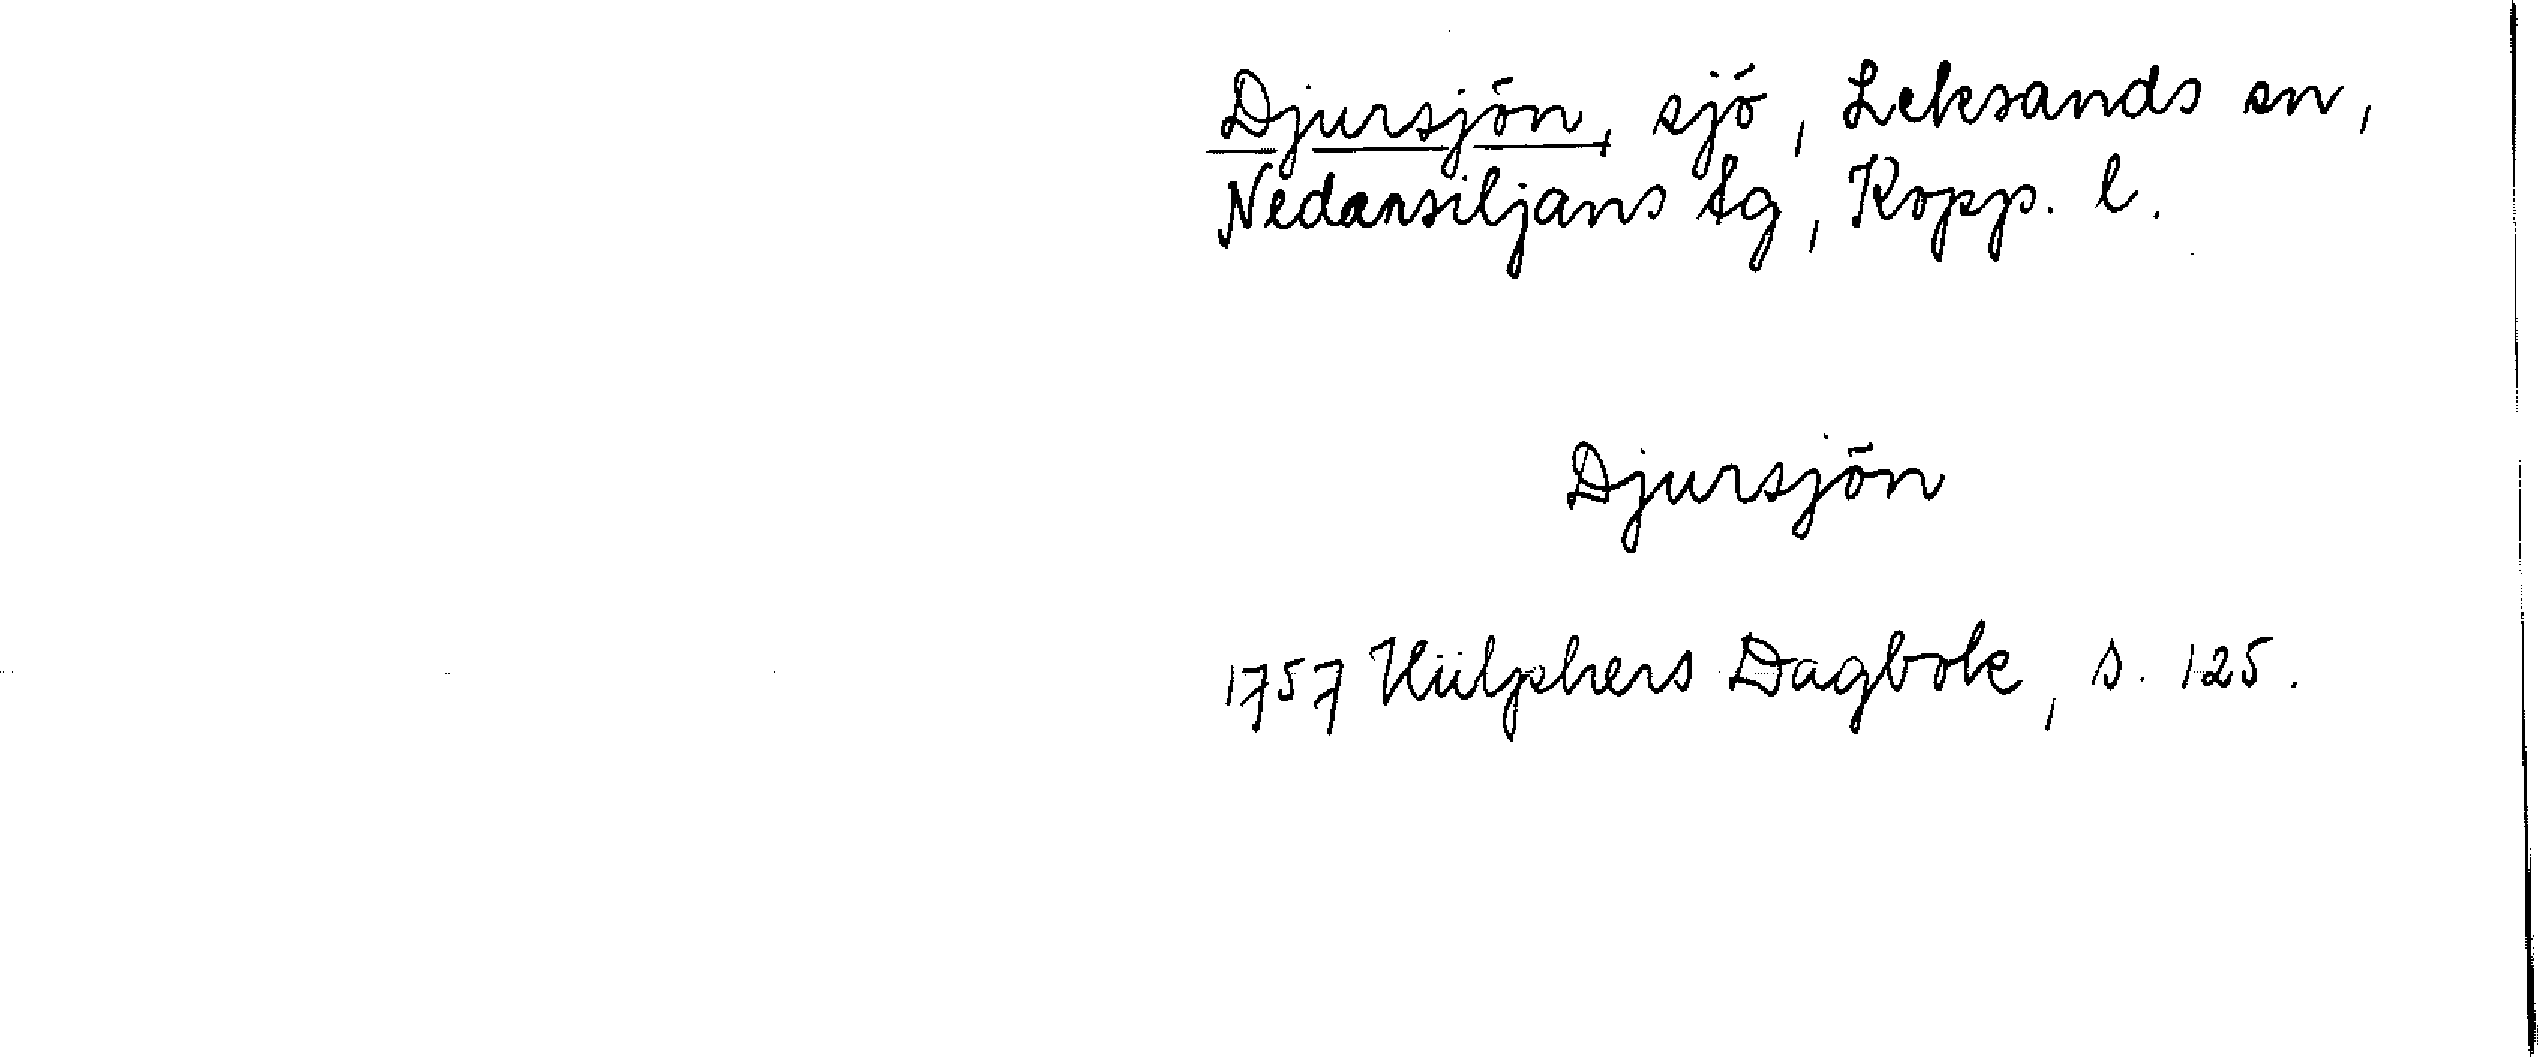 Djursjön, sjö, Leksands sn,
Nedansiljans tg, Kopp. l.
Djursjön
1757 Hülphers Dagbok, s. 125.